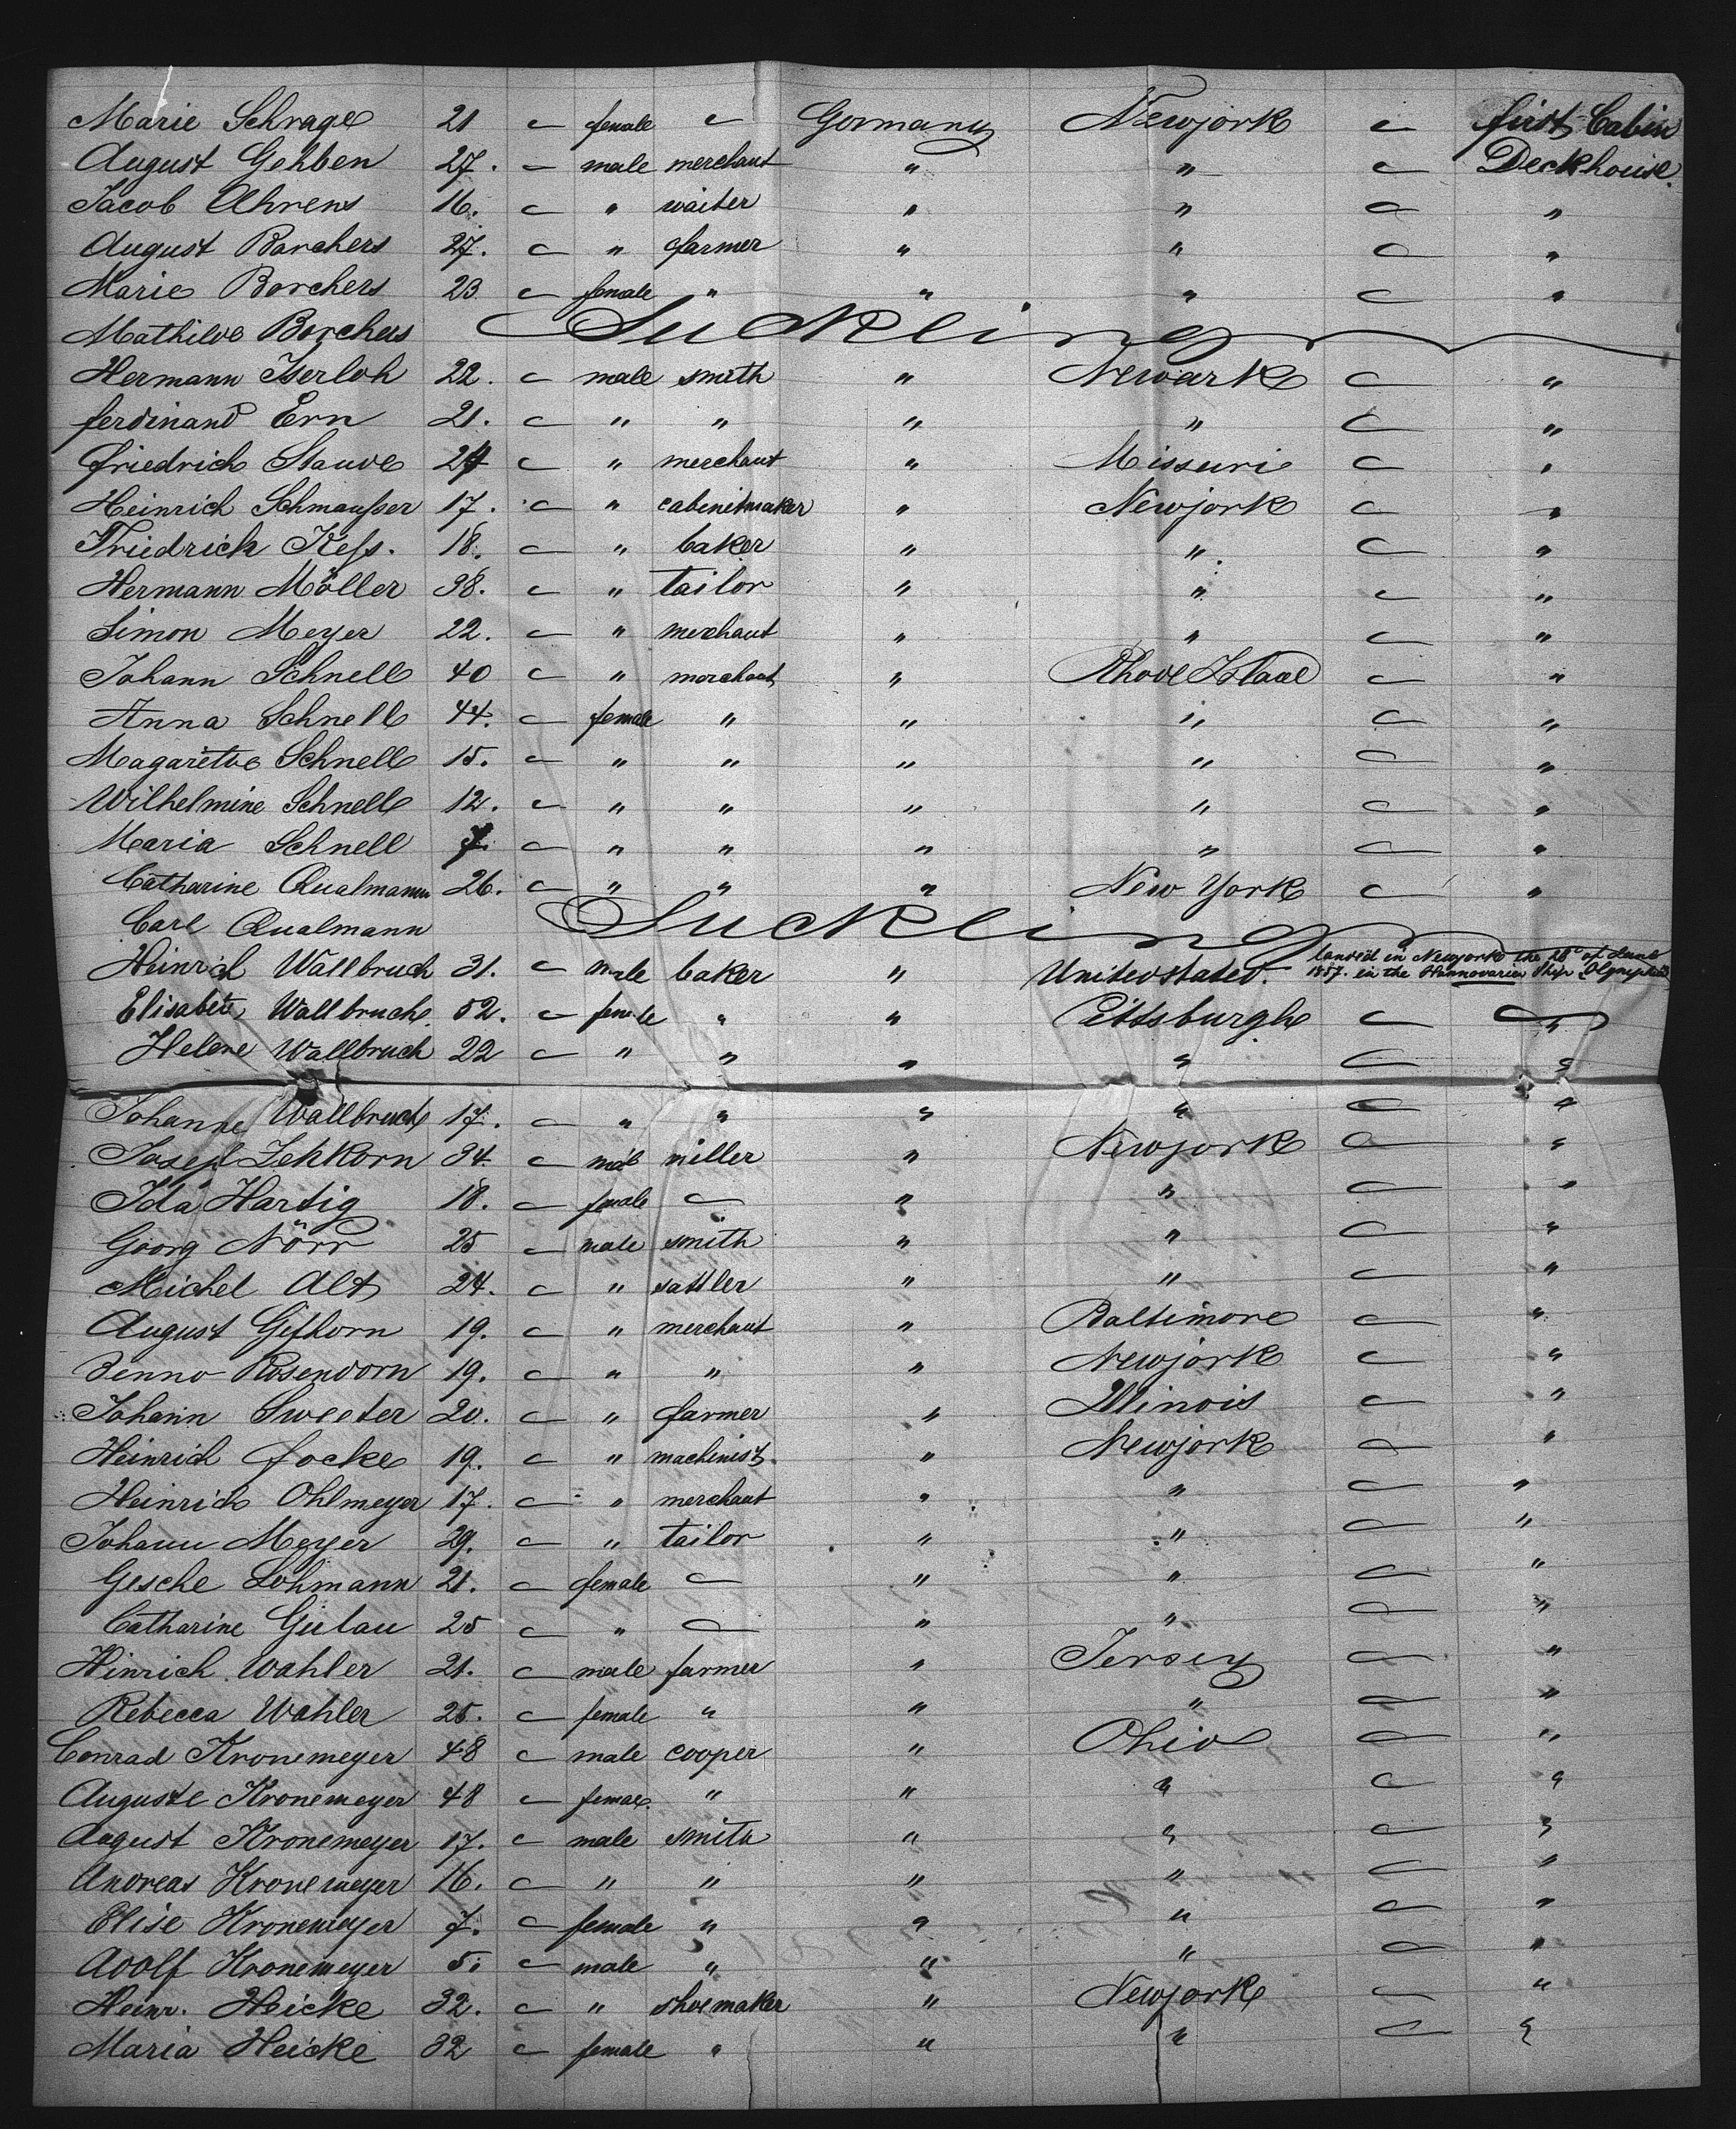 Marie Schrage 21 female Germany Newjork first Cabin
August Gehben 27. male merchant " " Deckhouse.
Jacob Ahrens 16. " waiter " " "
August Borchers 27. " farmer " " "
Marie Borchers 23 female " " " "
Mathilde Borchers Suckling
Hermann Iserloh 22. male smith " Newark "
ferdinand Ern 21. " " " " "
friedrich Stauve 24 " merchant " Missuri "
Heinrich Schmausser 17. " cabinetmaker " Newjork "
Friedrich Kess. 18. " baker " " "
Hermann Möller 38. " tailor " " "
Simon Meyer 22. " merchant " " "
Johann Schnell 40 " merchant " Rhode "
Anna Schnell 44. female " " " "
Magarethe Schnell 15. " " " " "
Wilhelmine Schnell 12. " " " " "
Maria Schnell 7. " " " " "
Catharine Qualmann 26. " " " New York "
Carl Qualmann Suckling
Heinrich Wallbruch 31. male baker " Unitedstates. landed in Newyork the 18° of June
1857. in the Hannovarien Ship
Elisabeth Wallbruch. 52. female " " Pittsburgh "
Helene Wallbruch 22 " " " " "
Johanne Wallbruch 17. " " " " "
Josepf Zehkorn 34. male miller " Newjork "
Ida Hartig 18. female " " "
Georg Nörr 25 male smith " " "
Michel Alt 24. " sattler " " "
August Gifhorn 19. " merchant " Baltimore "
Benno Rosendorn 19. " " " Newjork "
Johann Sweeter 20. " farmer " Illinois "
Heinrich focke 19. " machinist. " Newjork "
Heinrich Ohlmeyer 17. " merchant " " "
Johann Meyer 29. " tailor " " "
Gesche Lohmann 21. female " " "
Catharine Gulau 25 " " " "
Hinrich Wahler 21. male farmer " Jersey "
Rebecca Wahler 25. female " " " "
Conrad Kronemeyer 48 male cooper " Ohio "
Auguste Kronemeyer 48 female. " " " "
August Kronemeyer 17. male smith " " "
Andreas Kronemeyer 16. " " " " "
Elise Kronemeyer 7. female " " " "
Adolf Kronemeyer 5. male " " " "
Heinr. Heicke 32. " shoemaker " Newjork "
Maria Heicke 32 female " " " "